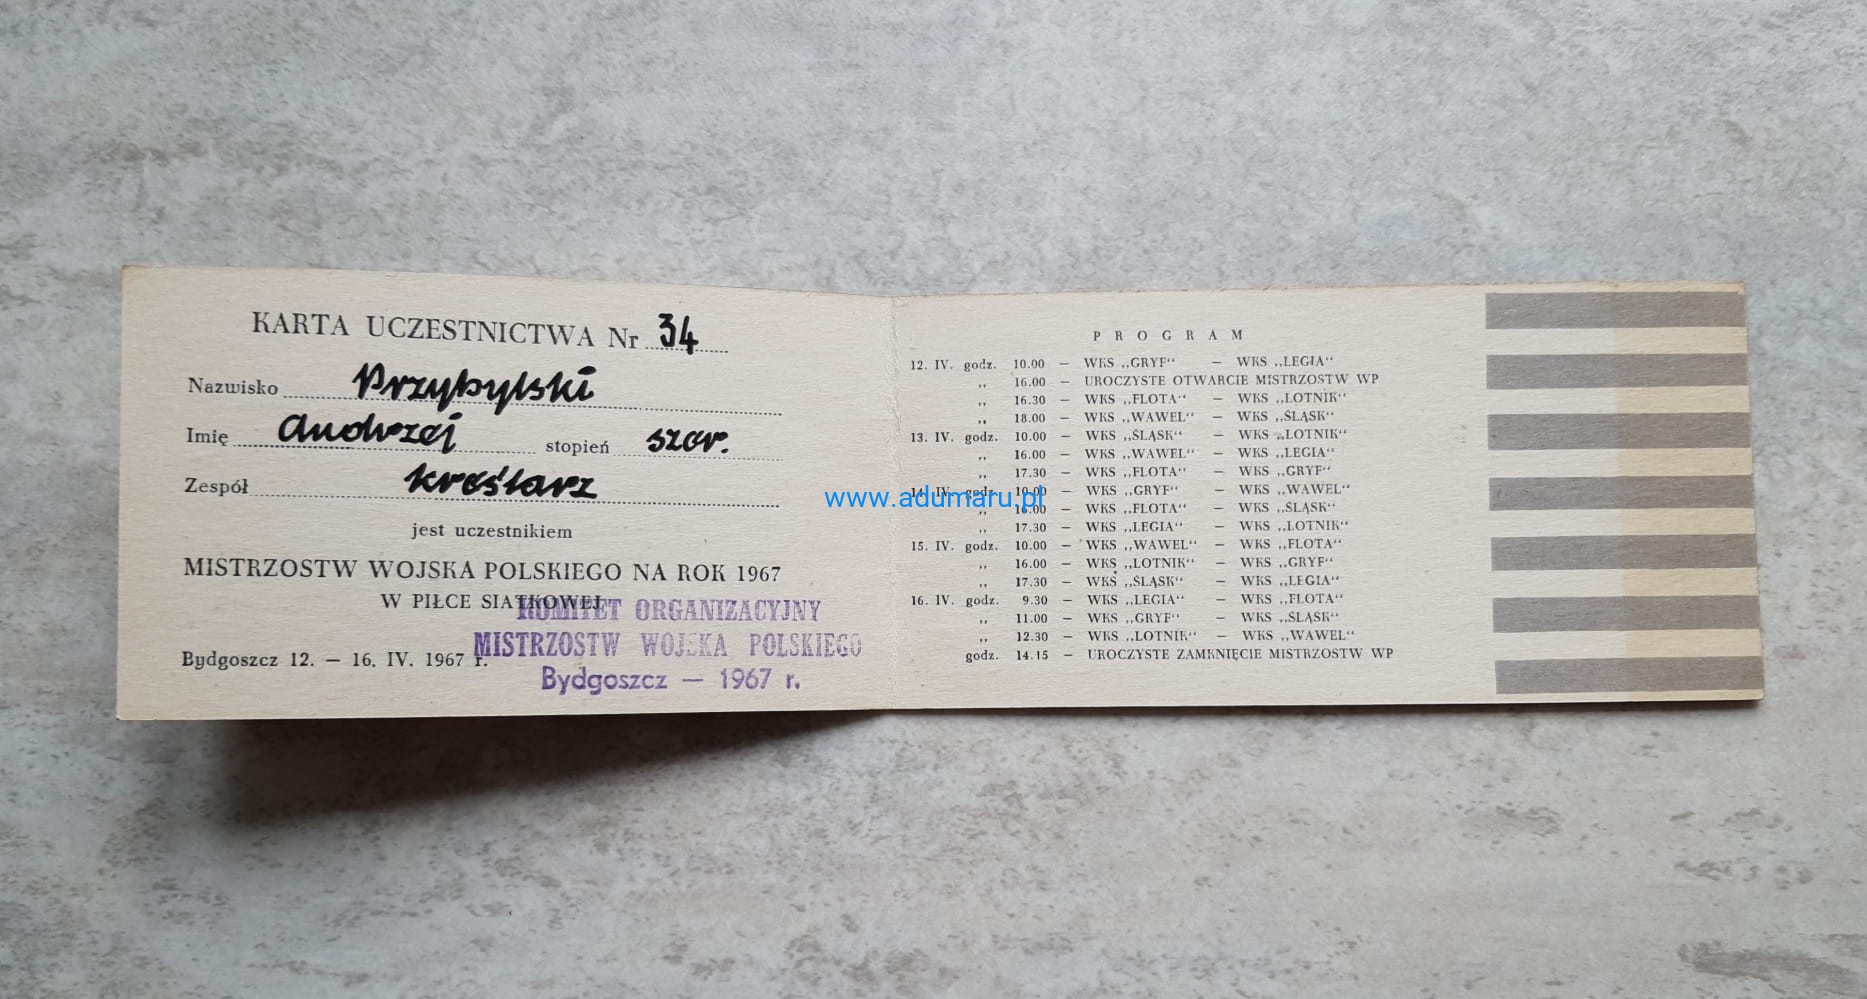 KARTA UCZESTNICTWA Nr 34
Nazwisko Przybylski
Imię Andrzej stopień szer.
Zespół kreślarz
jest uczestnikiem
MISTRZOSTW WOJSKA POLSKIEGO NA ROK 1967
W PIŁCE SIATKOWEJ
Bydgoszcz 12. — 16. IV. 1967 r.
KOMITET ORGANIZACYJNY
MISTRZOSTW WOJSKA POLSKIEGO
Bydgoszcz — 1967 r.
PROGRAM
12. IV. godz. 10.00 — WKS „GRYF“ — WKS „LEGIA“
„ 16.00 — UROCZYSTE OTWARCIE MISTRZOSTW WP
„ 16.30 — WKS „FLOTA“ — WKS „LOTNIK“
„ 18.00 — WKS „WAWEL“ — WKS „ŚLĄSK“
13. IV. godz. 10.00 — WKS „ŚLĄSK“ — WKS „LOTNIK“
„ 16.00 — WKS „WAWEL“ — WKS „LEGIA“
„ 17.30 — WKS „FLOTA“ — WKS „GRYF“
14. IV. godz. 10.00 — WKS „GRYF“ — WKS „WAWEL“
„ 16.00 — WKS „FLOTA“ — WKS „ŚLĄSK“
„ 17.30 — WKS „LEGIA“ — WKS „LOTNIK“
15. IV. godz. 10.00 — WKS „WAWEL“ — WKS „FLOTA“
„ 16.00 — WKS „LOTNIK“ — WKS „GRYF“
„ 17.30 — WKS „ŚLĄSK“ — WKS „LEGIA“
16. IV. godz. 9.30 — WKS „LEGIA“ — WKS „FLOTA“
„ 11.00 — WKS „GRYF“ — WKS „ŚLĄSK“
„ 12.30 — WKS „LOTNIK“ — WKS „WAWEL“
godz. 14.15 — UROCZYSTE ZAMKNIĘCIE MISTRZOSTW WP
www.adumaru.pl